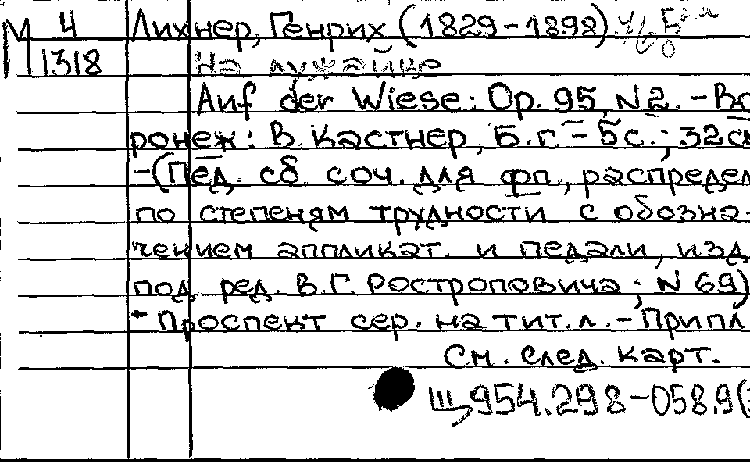 М 4 Лихнер, Генрих (1829-1898)
1318 На лужайце
Auf der Wiese: Op. 95, N 2. - Во
ронеж: В. Кастнер, Б.г. - 5 с.; 32 см
-(Пед. сб. соч. для фп., распредел
по степеням трудности с обозна-
чением аппликат. и педали, изд.
под ред. В.Г. Ростроповича; N 69)
- Проспект сер. на тит. л. - Припл
См. след. карт.
Щ954.298-058.9(